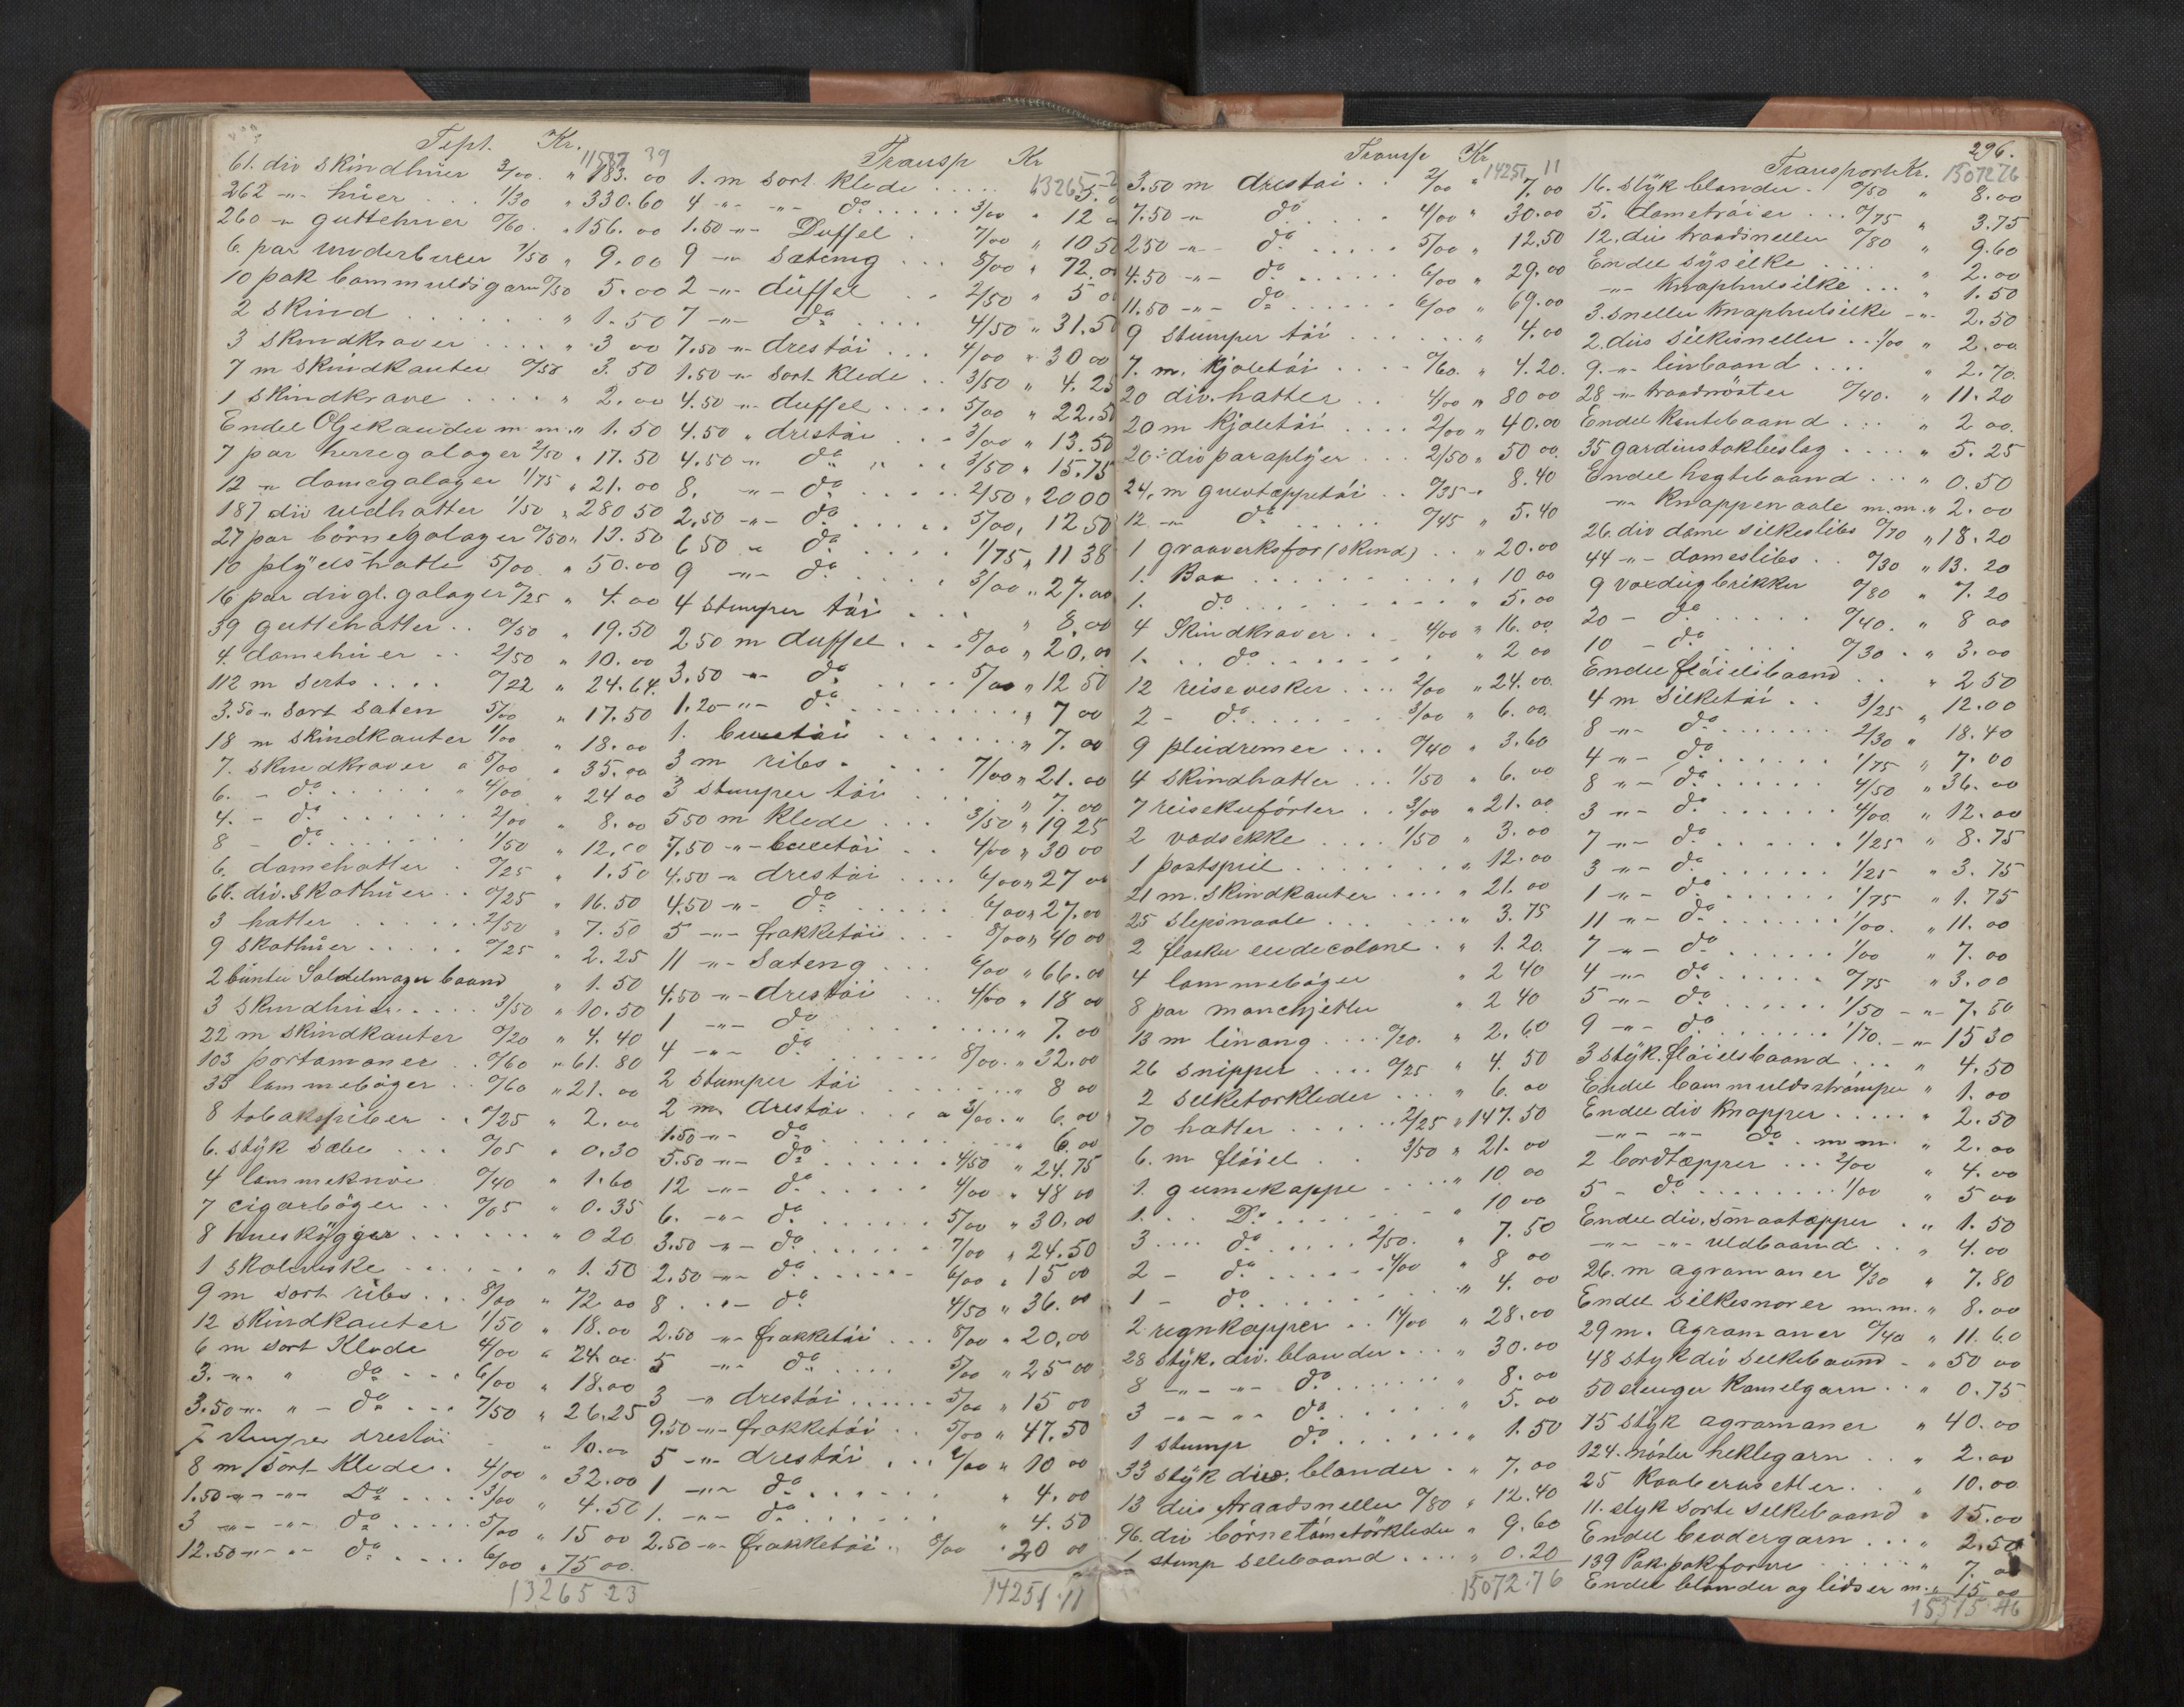 Tspt. Kr. 11587 39
61. div skindhuer 3/00. " 183. 00
262 -"- huer . . . 1/30 " 330.60
260 -" guttehuer 0/60. " 156. 00
6. par underbuxer 1/50 " 9. 00
10 pak bommuldsgarn 0/50 5. 00
2 skind . . . . . . " 1. 50
3 skindkraver . . . . " 3 00
7 m skindkanter 0/50 3. 50
1 skindkrave . . . . " 2. 00
Endel Oljekander m. m. " 1. 50
7 par herregalager 2/50 " 17. 50
12 -" damegalager 1/75 " 21. 00
187 div uldhatter 1/50 " 280 50
27 par börnegalager 0/50 " 13. 50
10 plydshatte 5/00 " 50. 00
16 par div gl. galager 0/25 " 4. 00
39 guttehatter . . 0/50 " 19.50
4. damehuer . . 2/50 " 10. 00
112 m serts . . . . 0/22 " 24.64.
3.50 " sort saten 5/00 " 17.50
18 m skindkanter 1/00 " 18. 00
7. skindkraver a 5/00 " 35. 00
6. - do . . . . . " 4/00 " 24 00
4. - do . . . . . . 2/00 " 8. 00
8 - do . . . . . . 1/50 " 12. 00
6. damehatter . 0/25 " 1. 50
66. div. skathuer . . 0/25 " 16. 50
3 hatter . . . . . . 2/50 " 7. 50
9 skathuer . . . . . 0/25 " 2. 25
2 bunter Saldelmager baand " 1. 50
3 skindhuer . . . . . 3/50 " 10. 50
22 m skindkanter 0/20 " 4. 40
103 portamoner . . 0/60 " 61. 80
35 lammeböger . . 0/60 " 21. 00
8 tobakspiber . . 0/25 " 2. 00
6. styk sæbe . . . 0/05 " 0. 30
4 lammeknive 0/40 " 1. 60
7 cigarböger . . 0/05 " 0. 35
8 hueskygger . . . . . . " 0 20
1 skoleveske . . . . . . " 1. 50
9 m sort ribs . . . 8/00 " 72. 00
12 skindkanter 1/50 " 18. 00
6 m sort Klede 4/00 " 24. 00
3. -"- " do . . . 6/00 " 18. 00
3.50 -"- " - do . . . 7/50 " 26.25
7 stumper drestöi " 10. 00
8 m sort Klede . 4/00 " 32. 00
1.50 -"- -"- Do . . . . 3/00 " 4. 50
3 -"- -"- do . . . . . 5/00 " 15 00
12.50 -"- -"- do . . . . 6/00 " 75 00.
13265.23
Transp Kr 13265.2
1. m sort klede . . . . . 3. 0
4 -"- -"- do . . . . . 3/00 " 12 0
1.50 -"- Duffel . 7/00 " 10 50
9 -" sateng . . . 8/00 " 72. 00
2 -"- duffel . . 2/50 " 5 0
7 -"- do . . . . 4/50 " 31. 50
7.50 -"- drestöi . . . 4/00 " 30 00
1.50 -" sort klede . . 3/50 " 4. 25
4.50 -"- duffel . . . . 5/00 " 22.50
4.50 " drestöi . . . 3/00 " 13. 50
4.50 -" do " . . 3/50 " 15.75
8. -"- do . . . . . 2/50 " 20 00
2.50 -"- do . . . . . 5/00 " 12 50
6 50 -" do . . . . 1/75 " 11 38
9 -"- do . . . . 3/00 " 27. 00
4 stumper töi . . . " 8. 00
2 50 m duffel . . . 8/00 " 20. 00
3.50 -"- do . . . . 5/00 " 12 50
1.20 -"- do . . . . . . . . " 7 00
1. buxetöi . . . . . . . " 7. 00
3 m ribs . . . . 7/00 " 21. 00
3 stumper töi . . . . " 7. 00
5 50 m Klede . . . 3/50 " 19 25
7.50 -"- buxetöi . . 4/00 " 30 00
4.50 -" drestöi . . . . 6/00 " 27 00
4.50 -"- do . . . . . . 6/00 " 27. 00
5 -"- frakketöi . . . 8/00 " 40 00
11 -"- Sateng . . . 6/00 " 66. 00
4.50 -"- drestöi . . . 4/00 " 18 00
1 -"- do . . . . . . . . . " 7. 00
4 -"- do . . . . . . 8/00. " 32. 00
2 stumper töi . . . . . . . " 8 00
2 m. drestöi . . . a 3/00. " 6. 00
1.50 -"- do . . . . . . . . . " 6. 00
5.50 -"- do . . . . . . 4/50 " 24. 75
12 -"- do . . . . . . 4/00 " 48 00
6. -"- do . . . . . . 5/00 " 30. 00
3.50 -"- do . . . . . 7/00 " 24. 50
2.50 -"- do . . . . . . 6/00 " 15 00
8 . . . do 4/50 " 36. 00
2.50 -"- frakketöi . . . 8/00 " 20. 00
5 -"- do . . . . 5/00 " 25 00
3 -" drestöi . . . . . . 5/00 " 15 00
9.50 -"- frakketöi . . 5/00 " 47. 50
5 -"- drestöi . . . 2/00 " 10 00
1 -"- do . . . . . . . " 4. 00
1. -"- do . . . . . . . " 4. 50
2.50 -"- frakketöi . . 8/00 " 20 00
14251.11
Transp Kr 14251 11
3.50 m drestöi . . 2/00 " 7. 00
7.50 -" do . . . . . 4/00 " 30. 00
2 50 -"- do . . . . . 5/00 " 12. 50
4.50 -"- do . . . . . . 6/00 " 29. 00
11.50 -"- do . . . . . . 6/00 " 69. 00
9 stumper töi . . . . . . " 4. 00
7. m. kjoletöi . . . . 0/60. " 4. 20.
20 div. hatter . . 4/00 " 80 00
20 m kjoletöi . . . . 2/00 " 40. 00
20 div paraplyer . . . 2/50 " 50 00.
24. m gulvtæppetöi . . 0/35 " 8. 40
12 -" do . . . . . 0/45 " 5. 40
1 graaverksfor (skind) . . " 20. 00
1. Boa . . . . . . . . . " 10 00
1. do . . . . . . . . . " 5. 00
4 Skindkraver . . . 4/00 " 16. 00
1. . . do . . . . . . . " 2 00
12 reisevesker . . . . 2/00 " 24. 00.
2 - do . . . . . . 3/00 " 6. 00.
9 pleidremer . . . 0/40 " 3. 60
4 skindhatter . . . 1/50 " 6. 00
7 reisekuförter . . 3/00 " 21. 00
2 vadsekke . . . . 1/50 " 3. 00
1 postspril . . . . . . . . " 12. 00
21 m. skindkanter . . . . " 21. 00
25 slipsnaale . . . . . . " 3. 75
2 flasker eudecolone . " 1. 20.
4 lammebøger " 2 40
8 par manchjetter " 2 40
13 m linang . . . . 0/20. " 2. 60
26 snipper . . . . 0/25 " 4. 50
2 silketorkleder . . . " 6. 00
70 hatter . . . . . . 2/25 " 147. 50
6. m flöiel . . 3/50 " 21. 00
1. gumekappe . . . . " 10 00
1. . . Do . . . . . . . " 10 00
3 . . . . do . . . . . 2/50. " 7. 50
2 - do . . . . . . 4/00 " 8 00
1 - do . . . . . . . . . " 4. 00
2 regnkapper . . 14/00 " 28. 00
28 styk. div. blonder . . . " 30. 00
8 -"- -"- do . . . . . . . " 8. 00
3 -"- -"- do . . . . . . " 5. 00
1 stump do . . . . . . " 1. 50
33 styk div. blonder . " 7. 00
13 dus traadsneller 0/80 " 12. 40
96. div börnetömetörkleder " 9. 60
1 stump selebaand . . . . " 0. 20
15072.76
296.
Transport Kr. 15072 76
16. styk blonder . 0/50 " 8. 00
5. dametröier . . . 0/75 " 3. 75
12. dus traadsneller 0/80 " 9. 60
Endel sysilke . . . . " 2. 00
-"- Knaphulsilke . . . " 1. 50
3. sneller Knaphulsilke -"- 2. 50
2. dus silkesneller . . 1/00 " 2. 00
9. -"- linbaand . . . . " 2. 70.
28 -" traadnöster 0/40. " 11. 20
Endel Kantebaand . . . " 2 00.
35 gardinstokbeslag . . . . " 5. 25
Endel hegtebaand . . . " 0. 50
-"- Knappenaale m. m. " 2. 00
26. div dame silkeslibs 0/70 " 18. 20
44 -"- dameslibs . . 0/30 " 13. 20
9 voxdugbrikker 0/80 " 7. 20
20 - do . . . . . 0/40. " 8 00
10 - do . . . . 0/30 . " 3. 00
Endel flöielsbaand . . " 2 50
4 m Silketöi . . 3/25 " 12. 00
8 -"- do . . . . . . 2/30 " 18. 40
4 -"- do . . . . . . . 1/75 " 7. 00
8 -"- do . . . . . . 4/50 " 36. 00
3 -"- do . . . . . . 4/00. " 12. 00
7 -"- do . . . . . . . 1/25 " 8. 75
3 -"- do . . . . . . 1/25 " 3. 75
1 -"- do . . . . . . 1/75 " 1. 75
11 -"- do . . . . . . 1/00. " 11. 00
7 -"- do . . . . . . 1/00 " 7. 00
4 -"- do . . . . . . 0/75 " 3. 00
5 -"- do . . . . . . 1/50 -"- 7. 50
9 -"- do . . . . . . . 1/70. -"- 15 30
3 styk. flöielsbaand . . . " 4. 50
Endel bommuldsströmper " 1. 00
Endel div Knapper . . . . . " 2. 50
-"- -"- do . m. m. " 2. 00
2 bordtæpper . . . 2/00 " 4. 00
5 - do . . . . . . . . 1/00 " 5 00
Endel div. smaatæpper . " 1. 50
-"- -"- uldbaand . . " 4. 00
26. m agramaner 0/30 " 7. 80
Endel silkesnorer m. m. " 8. 00
29 m. Agramaner 0/40 " 11. 60
48 styk div silkebaand - " 50 00
50 slenger Kamelgarn . . " 0. 75
75 styk agramaner " 40. 00
124. nöster heklegarn . . " 2. 00
25 Kaaberosetter . . " 10. 00.
11. styk sorte silkebaand " 15. 00
Endel brodergarn . . . " 2. 50
139 Pak. pakforme . . . . . . " 7. 00
Endel blonder og lidser m. " 15 00
15375.46